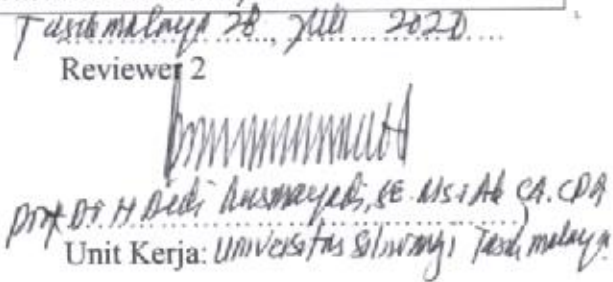 Tasikmalaya 28, Juli 2020
Reviewer 2
Prof. Dr. H Dedi Kusmayadi, SE. Msi Ak CA. CPA
Unit Kerja: Universitas Siliwangi Tasikmalaya